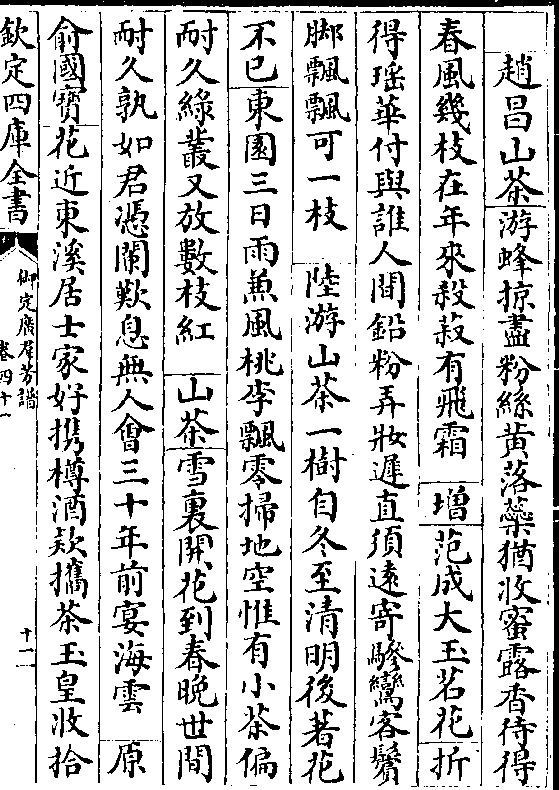 趙昌山茶游蜂掠盡粉絲黄落蘂猶收蜜露香待得
春風幾枝在年來殺菽有飛霜 増范成大玉茗花折
得瑶華付與誰人間鉛粉弄妝遲直須遠寄驂鸞客鬢
脚飄飄可一枝 陸游山茶一樹自冬至清明後著花
不已東園三日雨兼風桃李飄零掃地空惟有小茶偏
耐久綠叢又放數枝紅 山茶雪裏開花到春晚世間
耐久孰如君憑闌歎息無人會三十年前宴海雲 原
俞國寳花近東溪居士家好携樽酒欵攜茶玉皇收拾
欽定四庫全書
御定廣羣芳譜
卷四十一
十二